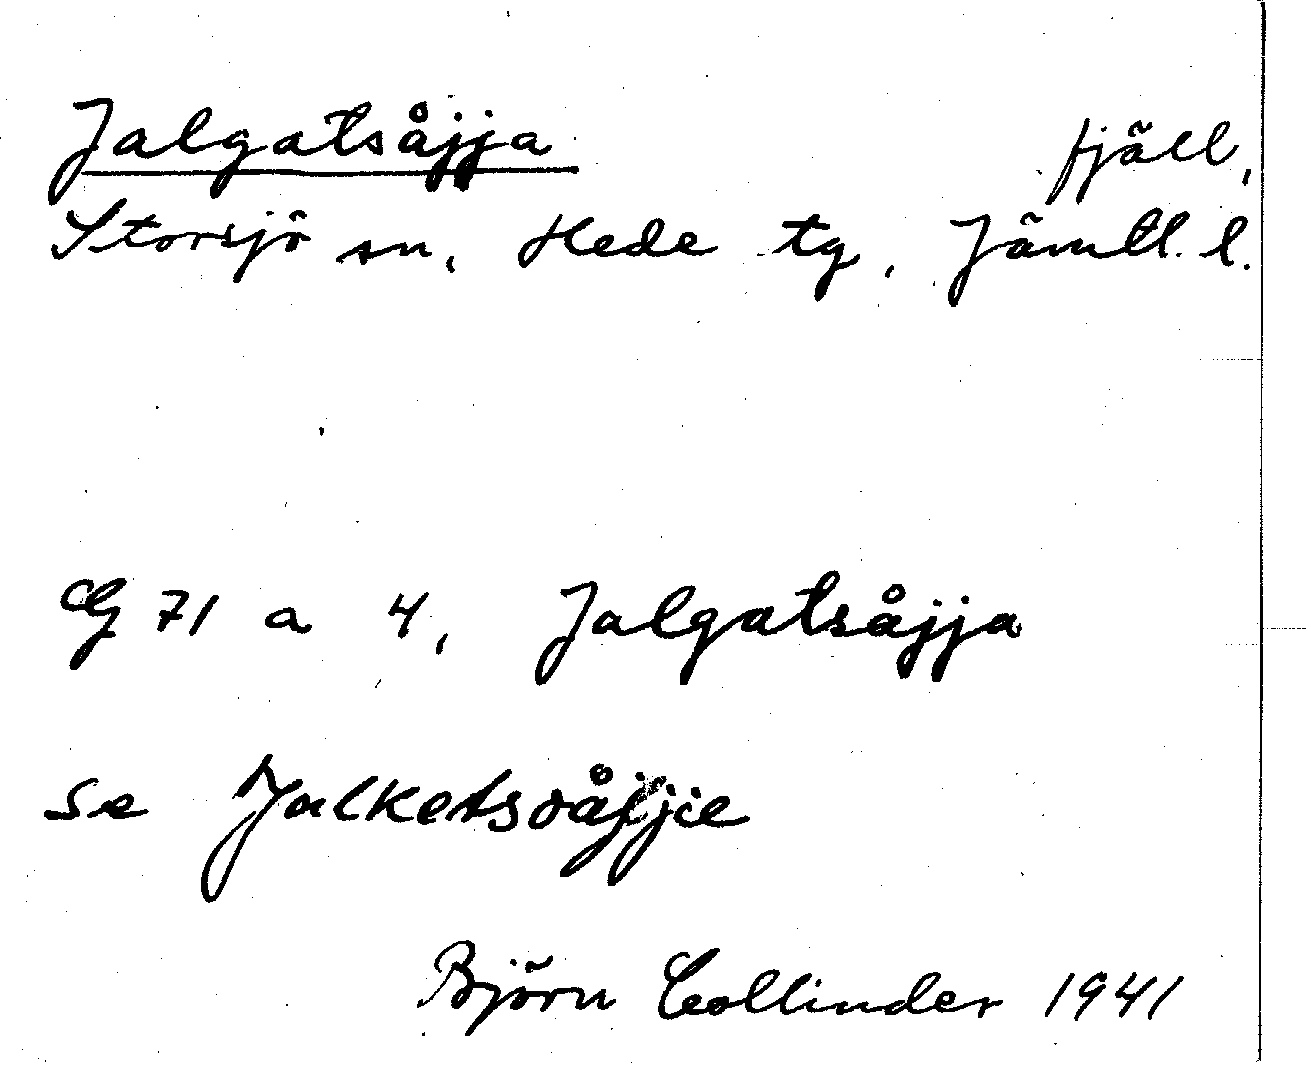 Jalgatsåjja fjäll,
Storsjö sn, Hede tg, Jämtl. l.
CG 71 a 4, Jalgatsåjja
se Jalketsoåjjie
Björn Collinder 1941